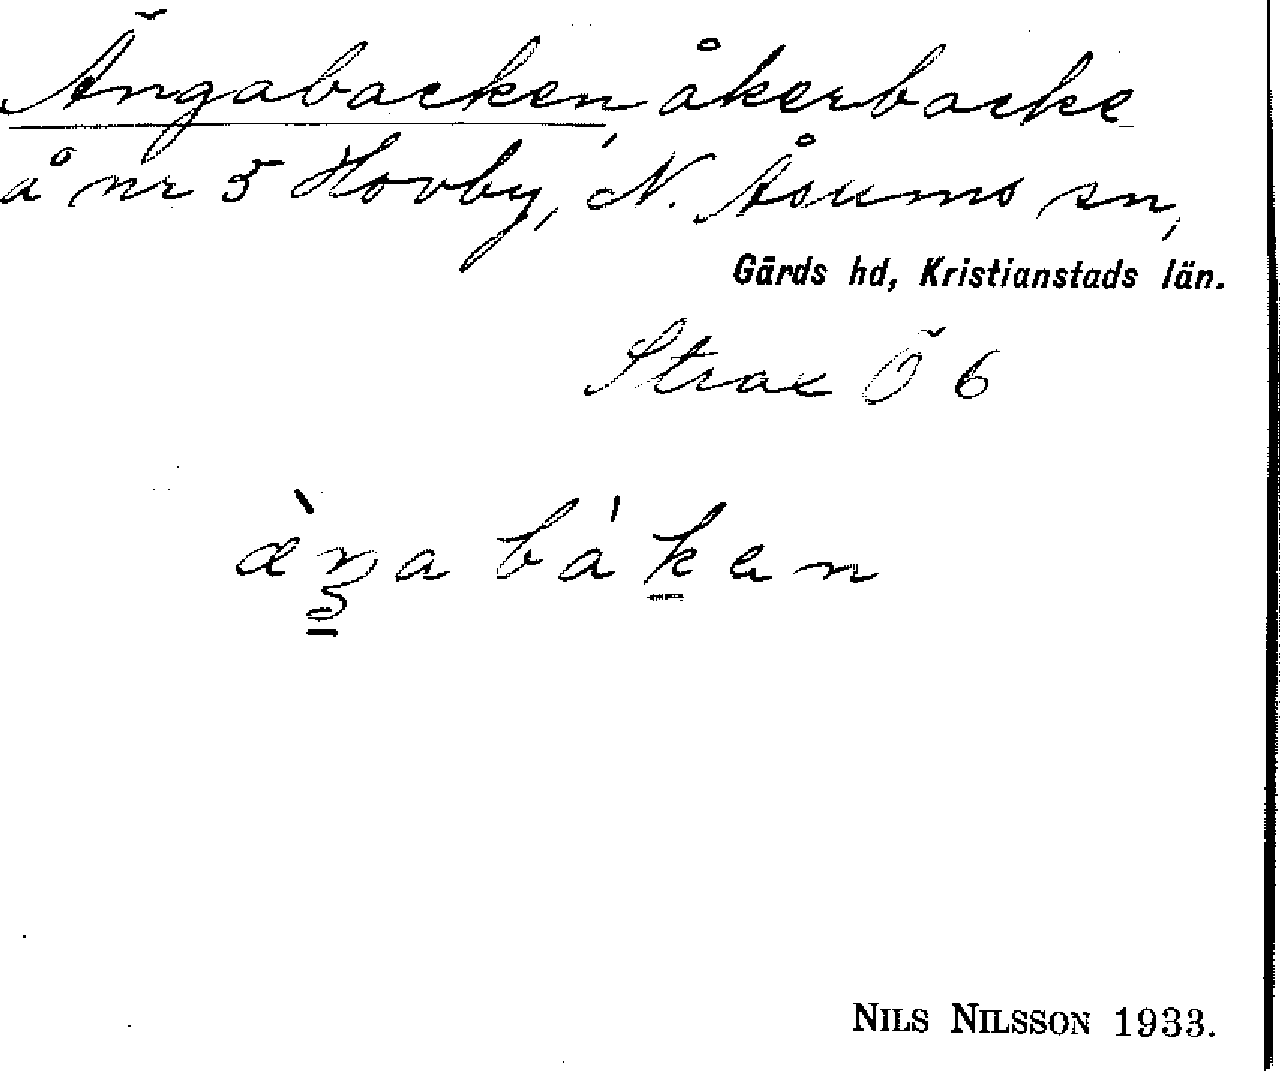 Ängabacken, åkerbacke
å nr 5 Hovby, N. Åsums sn,
Gärds hd, Kristianstads län.
Strax Ö 6
æ̀ŋabákan
NILS NILSSON 1933.